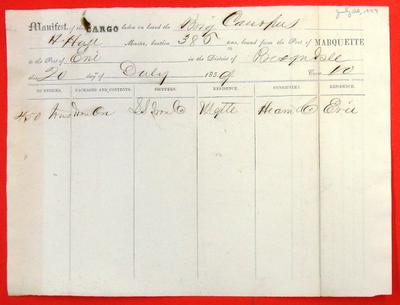 July 20, 1859
Manifest of the CARGO taken on board the Brig Canopus
H Hall Master, burthen 385 tons, bound from the Port of MARQUETTE
to the Port of Erie in the District of Presqu Isle
this 20 day of July 1859 Crew 10
TO ORDERS. PACKAGES AND CONTENTS. SHIPPERS. RESIDENCE. CONSIGNEES. RESIDENCE.
450 Tons Iron Ore L S Iron Co Mqtte Co Erie